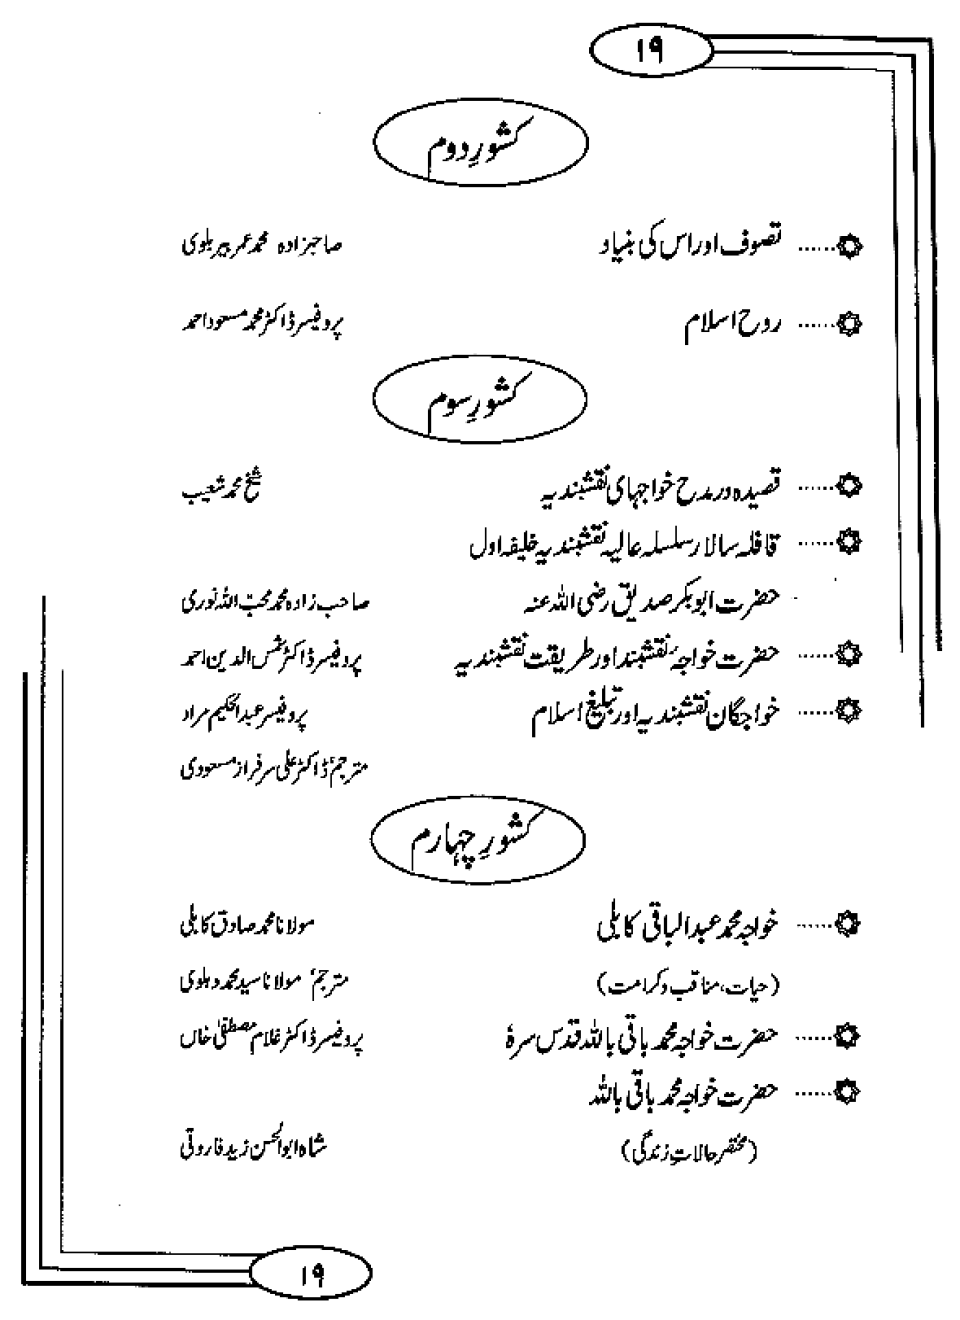 ۱۹
کشورِ دوم
تصوف اور اس کی بنیاد ...... صاحبزادہ محمد عمر بیربلوی
روح اسلام ...... پروفیسر ڈاکٹر محمد مسعود احمد
کشورِ سوم
قصیدہ در مدح خواجہای نقشبندیہ ...... شیخ محمد شعیب
قافلہ سالار سلسلہ عالیہ نقشبندیہ خلیفہ اول ......
حضرت ابوبکر صدیق رضی اللہ عنہ صاحب زادہ محمد محب اللہ نوری
حضرت خواجہ نقشبند اور طریقت نقشبندیہ ...... پروفیسر ڈاکٹر شمس الدین احمد
خواجگان نقشبندیہ اور تبلیغ اسلام ...... پروفیسر عبدالحکیم مراد
مترجم؛ ڈاکٹر علی سرفراز مسعودی
کشورِ چہارم
خواجہ محمد عبدالباقی کابلی ...... مولانا محمد صادق کابلی
(حیات، مناقب و کرامت) مترجم؛ مولانا سید محمد دہلوی
حضرت خواجہ محمد باقی باللہ قدس سرہٗ ...... پروفیسر ڈاکٹر غلام مصطفیٰ خاں
حضرت خواجہ محمد باقی باللہ ......
(مختصر حالاتِ زندگی) شاہ ابوالحسن زید فاروقی
۱۹